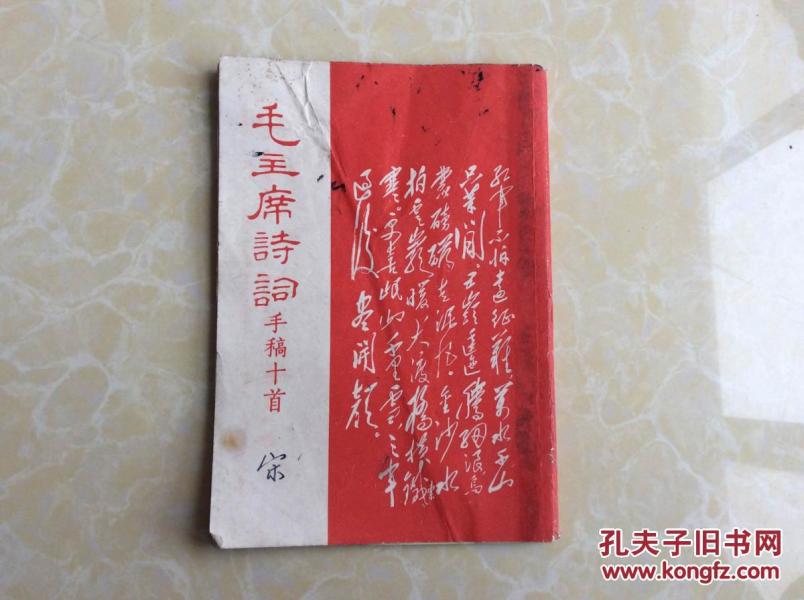 毛主席詩詞
手稿十首
宋
紅軍不怕遠征難，萬水千山
只等閒。五嶺逶迤騰細浪，烏
蒙磅礴走泥丸。金沙水
拍雲崖暖，大渡橋横鐵索
寒。更喜岷山千里雪，三軍
過後盡開顔。
孔夫子旧书网
www.kongfz.com